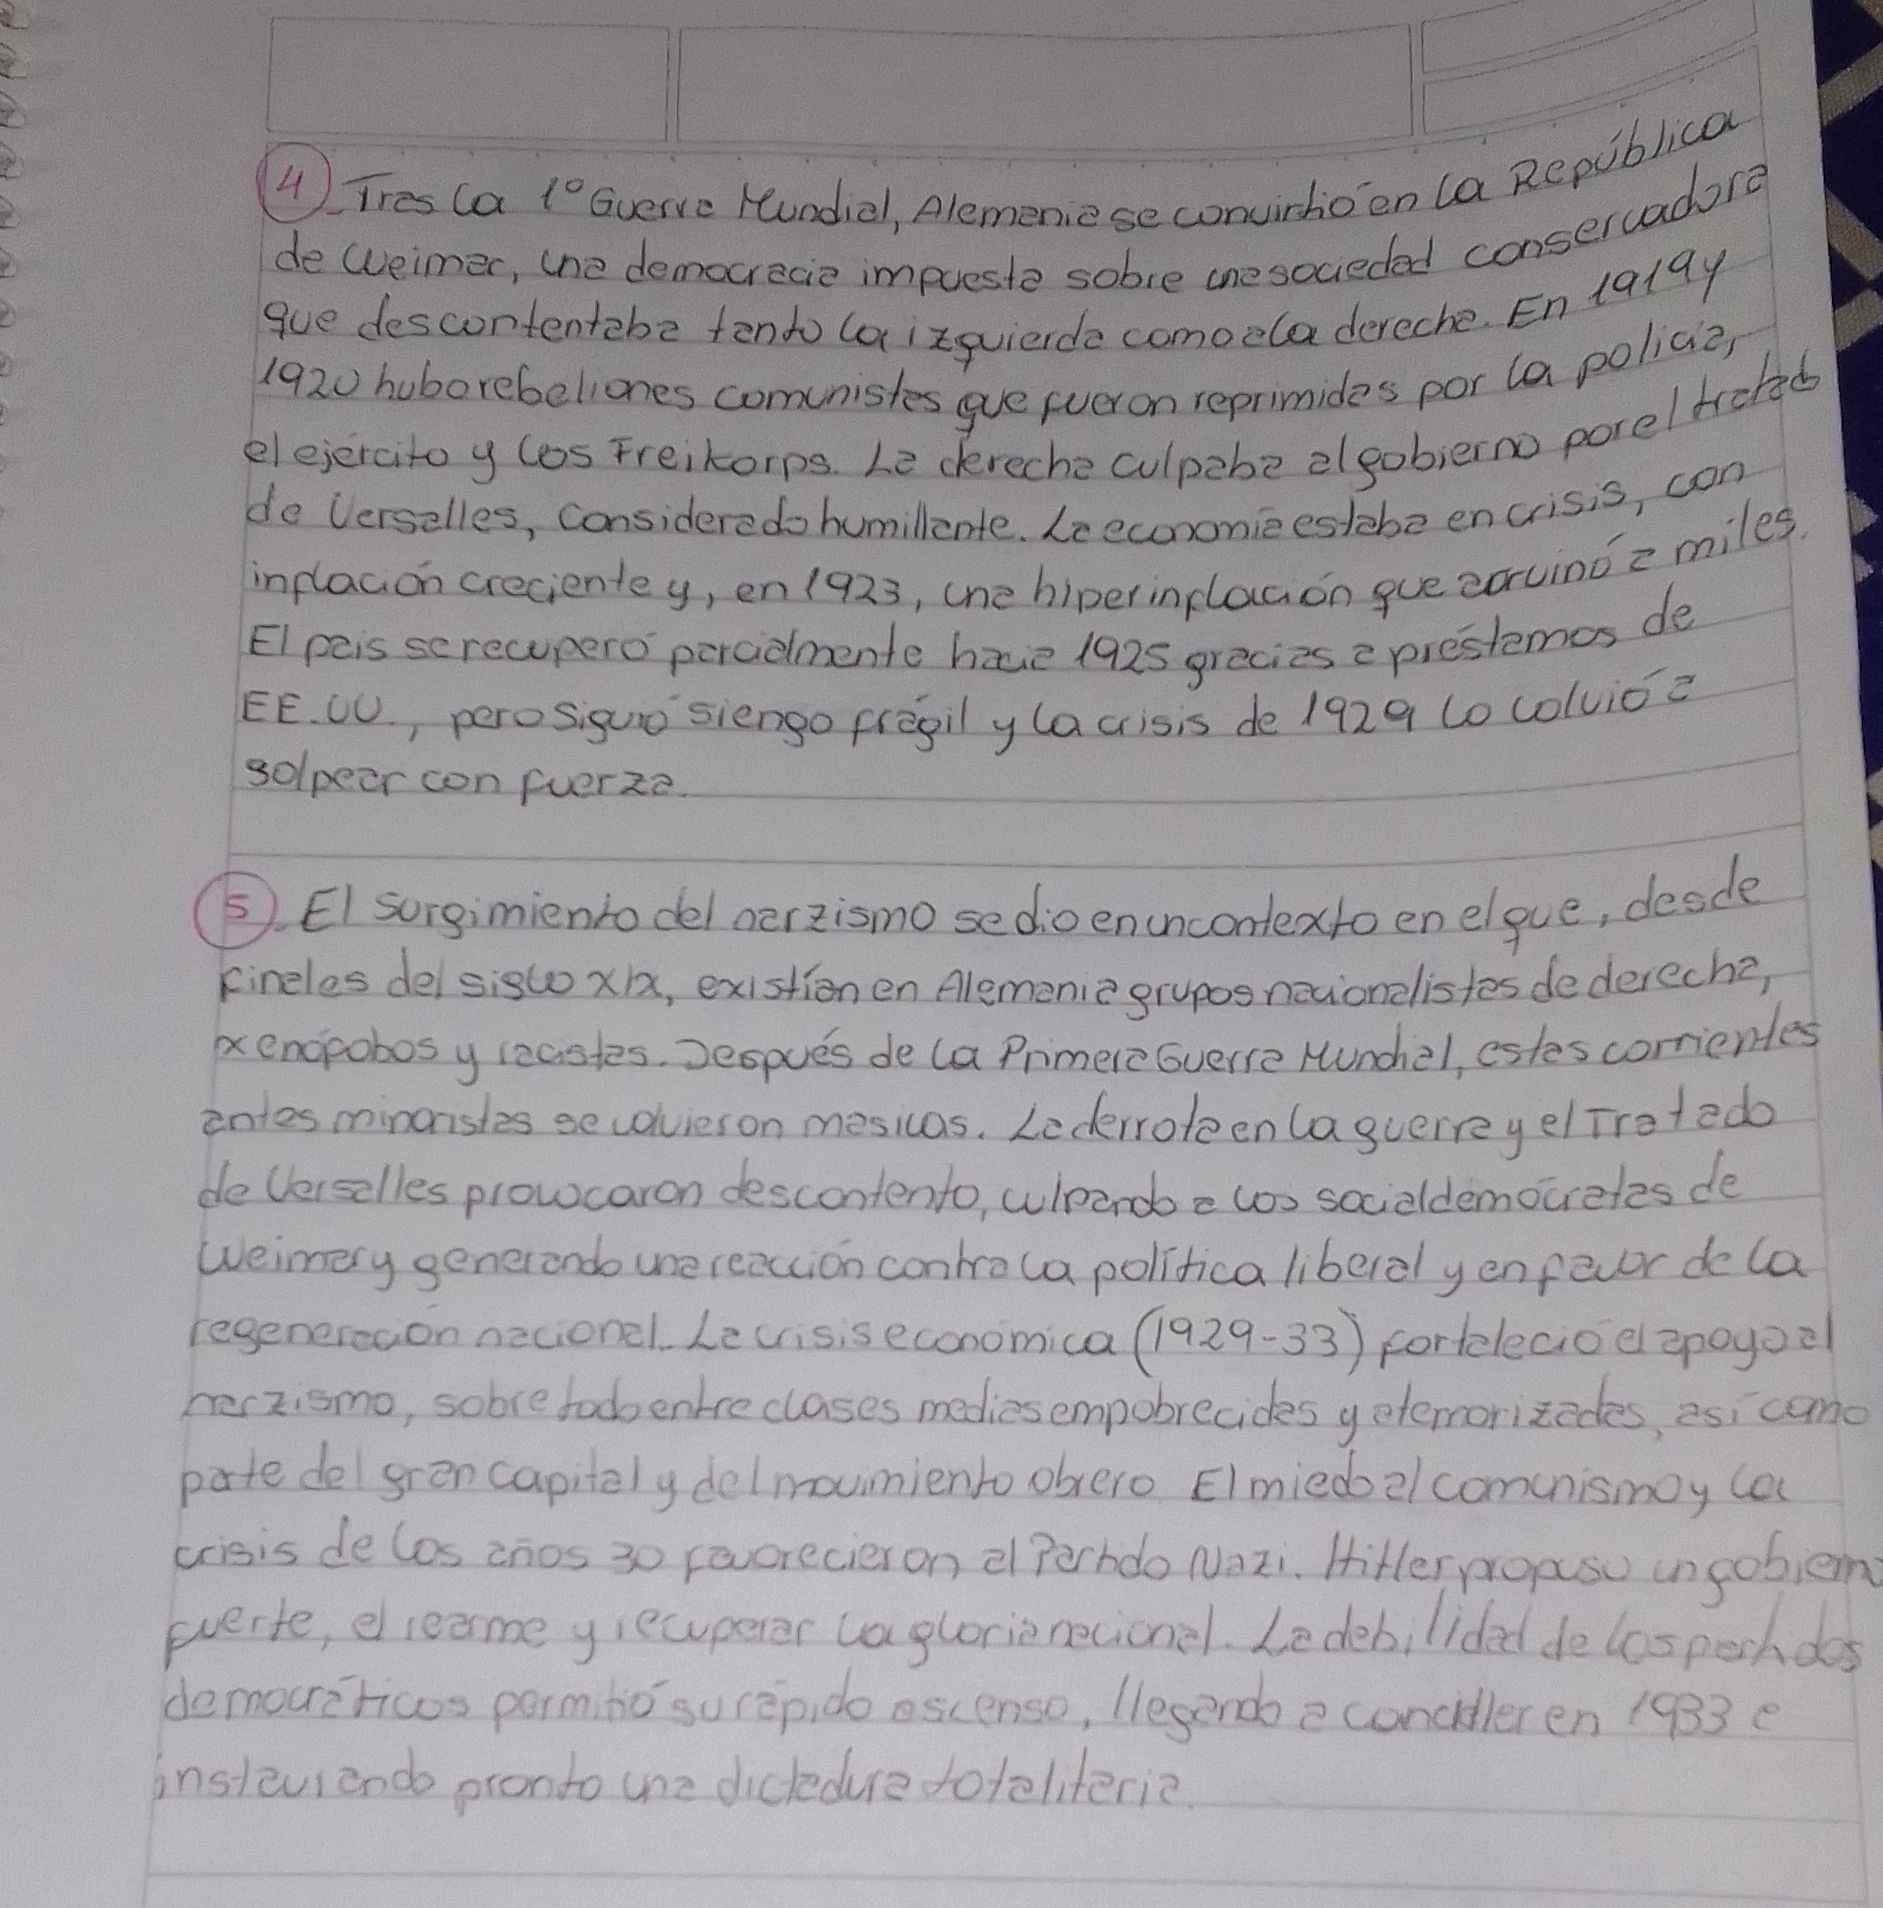 4). Tras la 1º Guerra Mundial, Alemania se convirtió en la República
de Weimar, una democracia impuesta sobre una sociedad conservadora
que descontentaba tanto la izquierda como a la derecha. En 1919 y
1920 hubo rebeliones comunistas que fueron reprimidas por la policía,
el ejército y los Freikorps. La derecha culpaba al gobierno por el tratado
de Versalles, considerado humillante. La economía estaba en crisis, con
inflación creciente y, en 1923, una hiperinflación que arruinó a miles.
El país se recuperó parcialmente hacia 1925 gracias a préstamos de
EE.UU., pero siguió siengo frágil y la crisis de 1929 lo volvió a
golpear con fuerza.
5). El surgimiento del narzismo se dio en un contexto en el que, desde
finales del siglo XIX, existían en Alemania grupos nacionalistas de derecha,
xenófobos y racistas. Después de la Primera Guerra Mundial, estas corrientes
antes minoristas se volvieron masicas. La derrota en la guerra y el Tratado
de Versalles prowocaron descontento, culpando a los socialdemócratas de
Weimar y generando una reacción contra la política liberal y en favor de la
regeneración nacional. La crisis económica (1929-33) fortaleció el apoyo al
narzismo, sobre todo entre clases medias empobrecidas y atemorizadas, así como
parte del gran capital y del movimiento obrero El miedo al comunismo y la
crisis de los años 30 favorecieron al Partido Nazi. Hitler propuso un gobierno
fuerte, el rearme y recuperar la gloria nacional. La debilidad de los partidos
democráticos permitió su rápido ascenso, llegando a canciller en 1933 e
instaurando pronto una dictadura totalitaria.